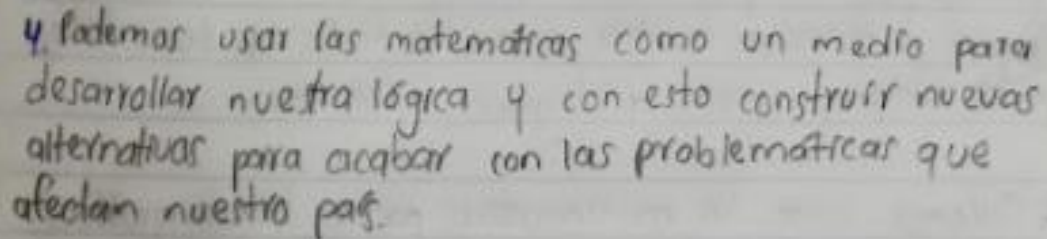 4. Podemos usar las matemáticas como un medio para
desarrollar nuestra lógica y con esto construir nuevas
alternativas para acabar con las problemáticas que
afectan nuestro país.